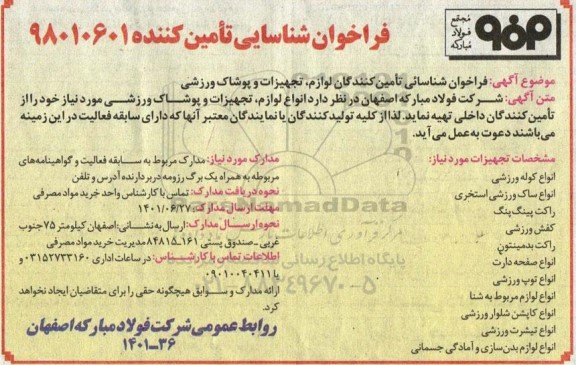 مجتمع
فولاد
مبارکه
فراخوان شناسایی تأمین کننده ۹۸۰۱۰۶۰۱
موضوع آگهی: فراخوان شناسائی تأمین کنندگان لوازم، تجهیزات و پوشاک ورزشی
متن آگهی: شرکت فولاد مبارکه اصفهان در نظر دارد انواع لوازم، تجهیزات و پوشاک ورزشی مورد نیاز خود را از
تأمین کنندگان داخلی تهیه نماید. لذا از کلیه تولید کنندگان یا نمایندگان معتبر آنها که دارای سابقه فعالیت در این زمینه
می‌باشند دعوت به عمل می آید.
مشخصات تجهیزات مورد نیاز:
انواع کوله ورزشی
انواع ساک ورزشی استخری
راکت پینگ پنگ
کفش ورزشی
راکت بدمینتون
انواع صفحه دارت
انواع توپ ورزشی
انواع لوازم مربوط به شنا
انواع کاپشن شلوار ورزشی
انواع تیشرت ورزشی
انواع لوازم بدن‌سازی و آمادگی جسمانی
مدارک مورد نیاز: مدارک مربوط به سابقه فعالیت و گواهینامه‌های
مربوطه به همراه یک برگ رزومه در بردارنده آدرس و تلفن
نحوه دریافت مدارک: تماس با کارشناس واحد خرید مواد مصرفی
مهلت ارسال مدارک: ۱۴۰۱/۰۶/۲۷
نحوه ارسال مدارک: ارسال به نشانی: اصفهان کیلومتر ۷۵ جنوب
غربی ـ صندوق پستی ۱۶۱ـ۸۴۸۱۵ مدیریت خرید مواد مصرفی
اطلاعات تماس با کارشناس: در ساعات اداری ۰۳۱۵۲۷۳۳۱۶۰ و
یا ۰۹۰۱۰۰۴۰۴۱۱
ارائه مدارک و سوابق هیچگونه حقی را برای متقاضیان ایجاد نخواهد
کرد.
روابط عمومی شرکت فولاد مبارکه اصفهان
۳۶ـ۱۴۰۱
ParsNamadData